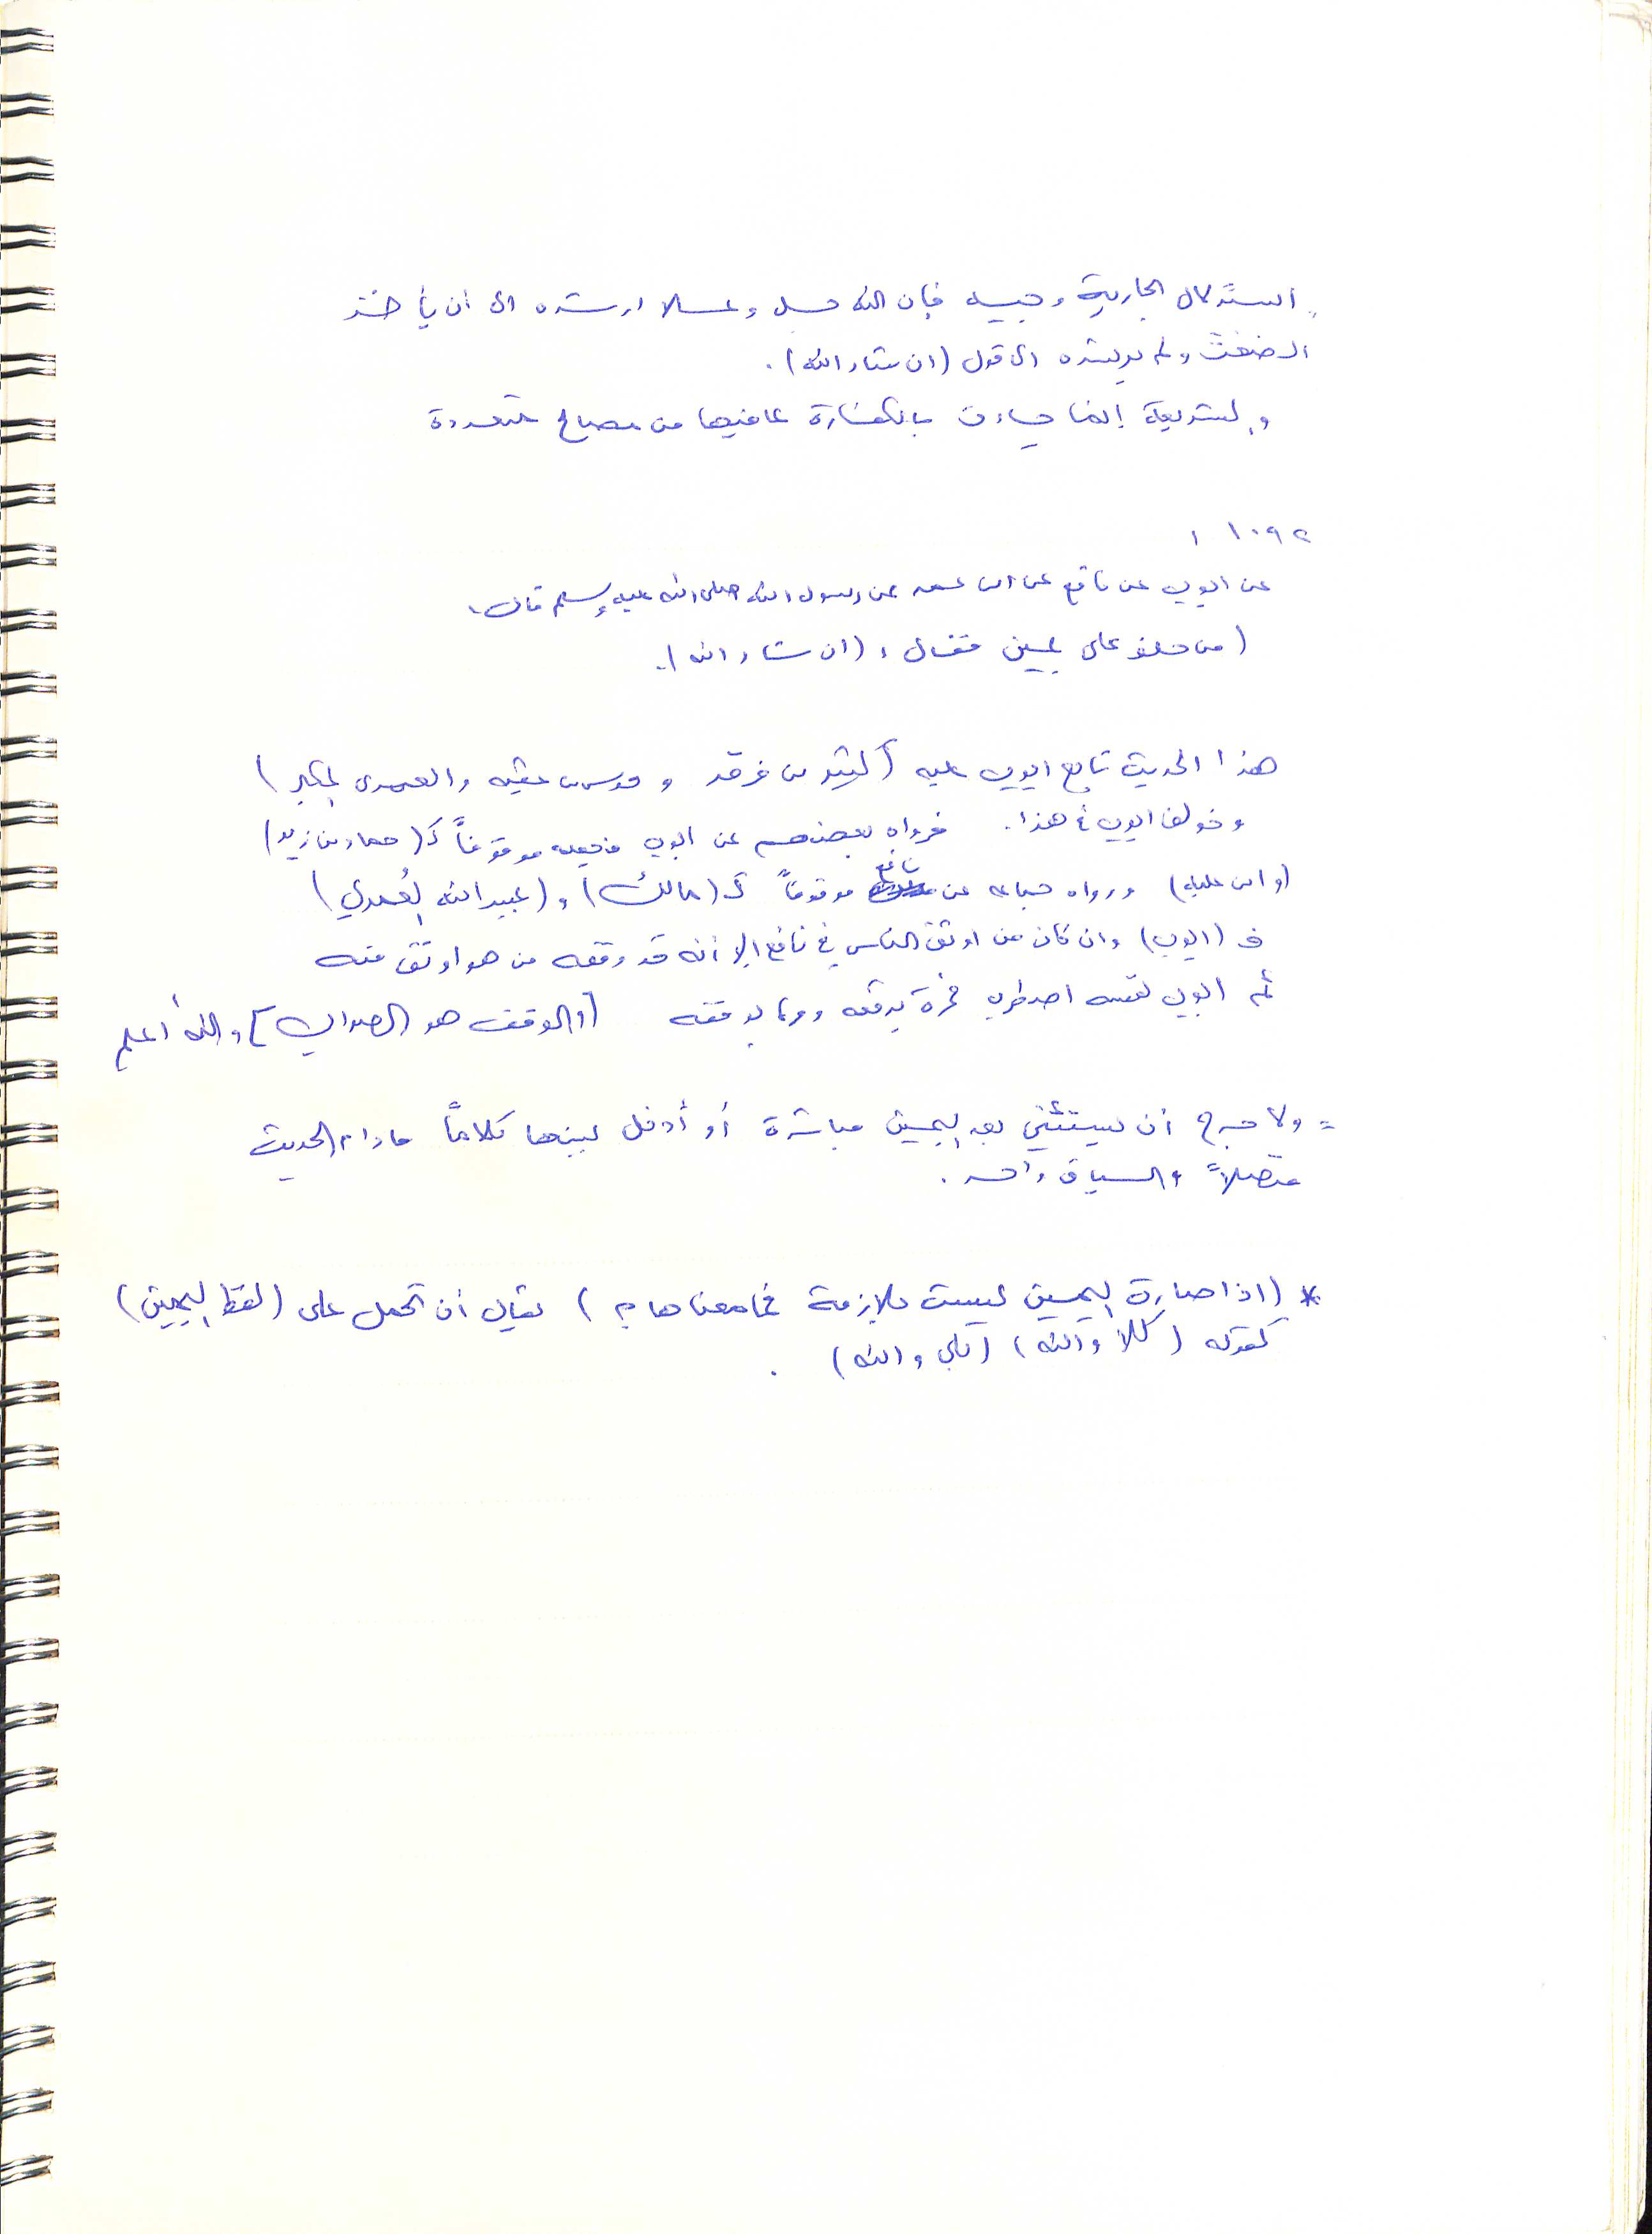 استدلال الجارية وجيه فإن الله جل وعلا ارشده الى ان يأخذ
الضغث ولم يرشده الى قول (ان شاء الله).
والشريعة إنما جاءت بالكفارة لما فيها من مصالح متعددة
١٠٩٢ :
عن ايوب عن نافع عن ابن عمر عن رسول الله صلى الله عليه وسلم قال:
(من حلف على يمين فقال : (ان شاء الله).
هذا الحديث تابع ايوب عليه (كثير بن فرقد و موسى بن عقبه والعمري المكبر)
وخولف ايوب في هذا. فرواه بعضهم عن ايوب فجعله موقوفاً كـ(حماد بن زيد)
(وابن عليه) ورواه جماعه عن نافع موقوفاً كـ (مالك) و(عبيدالله العُمري)
فـ (ايوب) وان كان من اوثق الناس في نافع إلا أنه قد وقفه من هو اوثق منه
ثم ايوب نفسه اضطرب فمرة يرفعه ومرة يوقفه [والوقف هو الصواب] والله أعلم
= ولا حرج أن يستثني بعد اليمين مباشرة أو أدخل بينها كلاماً مادام الحديث
متصلاً والسياق واحد.
* (اذا صارت اليمين ليست ملازمة فما معناها ؟) يقال أن تحمل على (لفظ اليمين)
كقوله (كلا والله) (بلى والله) .